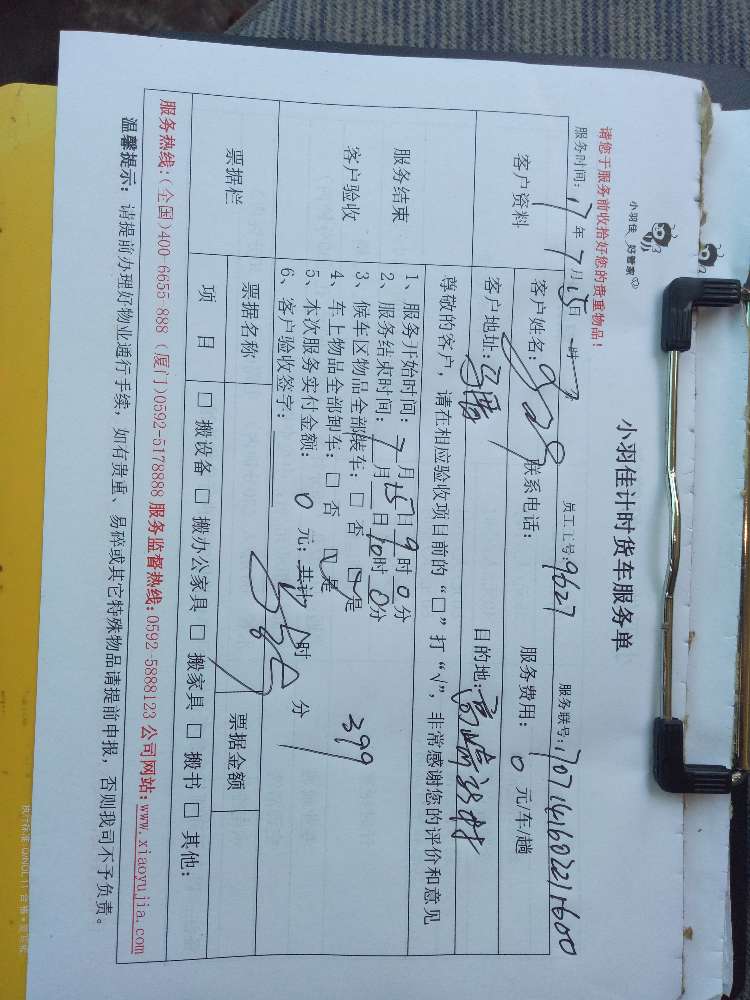 小羽佳 好管家
小羽佳计时货车服务单
请您于服务前收拾好您的贵重物品！
服务时间：17年7月15日 时 员工工号：9627 服务联号：
客户资料
客户姓名： 联系电话： 服务费用：0元/车/趟
客户地址： 目的地：
尊敬的客户，请在相应验收项目前的“□”打“√”，非常感谢您的评价和意见
服务结束
客户验收
1、服务开始时间：7月15日9时0分
2、服务结束时间： 月 日10时0分
3、候车区物品全部装车：□ 否 ☑ 是
4、车上物品全部卸车：□ 否 ☑ 是
5、本次服务实付金额：0元；共计 时 分
399
6、客户验收签字：
票据栏
票据名称 票据金额
项 目 □ 搬设备 □ 搬办公家具 □ 搬家具 □ 搬书 □ 其他：
服务热线：(全国)400-6655-888 (厦门)0592-5178888 服务监督热线：0592-5888123 公司网站：www.xiaoyujia.com
温馨提示：请提前办理好物业通行手续，如有贵重、易碎或其它特殊物品请提前申报，否则我司不予负责。